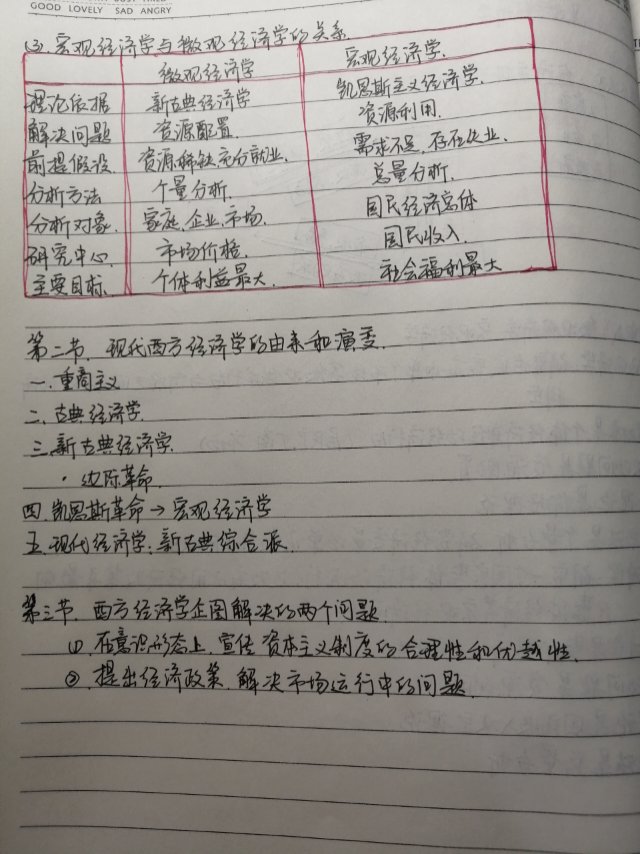 GOOD LOVELY SAD ANGRY
(3) 宏观经济学与微观经济学的关系.
微观经济学 宏观经济学.
理论依据 新古典经济学 凯恩斯主义经济学.
解决问题 资源配置. 资源利用.
前提假设. 资源稀缺.充分就业. 需求不足.存在失业.
分析方法 个量分析. 总量分析.
分析对象. 家庭.企业.市场. 国民经济总体
研究中心. 市场价格. 国民收入.
主要目标. 个体利益最大. 社会福利最大
第二节. 现代西方经济学的由来和演变.
一.重商主义
二.古典经济学.
三.新古典经济学.
·边际革命.
四.凯恩斯革命→宏观经济学
五.现代经济学:新古典综合派.
第三节.西方经济学企图解决的两个问题.
①.在意识形态上.宣传资本主义制度的合理性和优越性.
②.提出经济政策.解决市场运行中的问题.